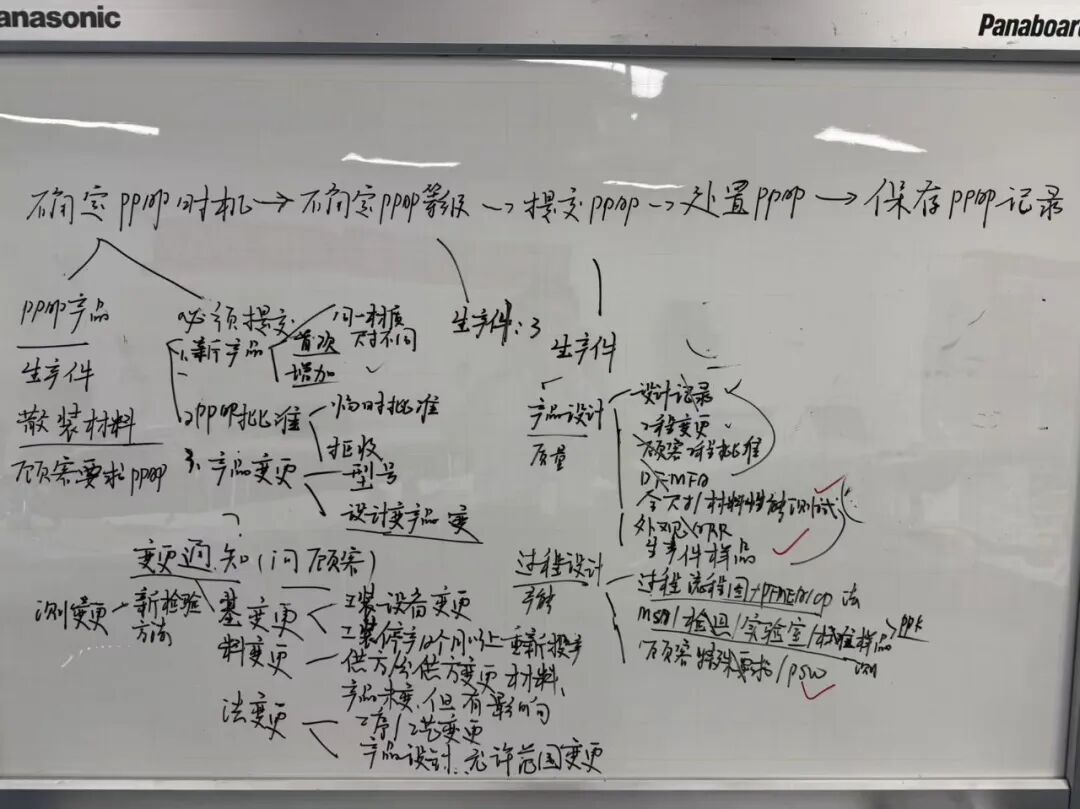 anasonic
Panaboard
确定PPAP时机→确定PPAP等级→提交PPAP→处置PPAP→保存PPAP记录
PPAP产品
生产件
散装材料
顾客要求PPAP
必须提交
1.新产品
首次
增加
同一材质
尺寸不同
2.PPAP批准
临时批准
拒收
3.产品变更
型号
设计变产品变
变更通知(问顾客)
测变更
新检验
方法
变更
工装设备变更
工装停产12个月以上重新投产
料变更
供方/分供方变更材料、
产品未变,但有影响
法变更
工序/工艺变更
产品设计允许范围变更
生产件:3
生产件
产品设计
质量
设计记录
工程变更
顾客工程批准
DFMEA
全尺寸/材料性能测试
外观/AAR
生产件样品
过程设计
过程流程图+PFMEA/CP 法
MSA/检具/实验室/标准样品
PPK
顾客特殊要求/PSW